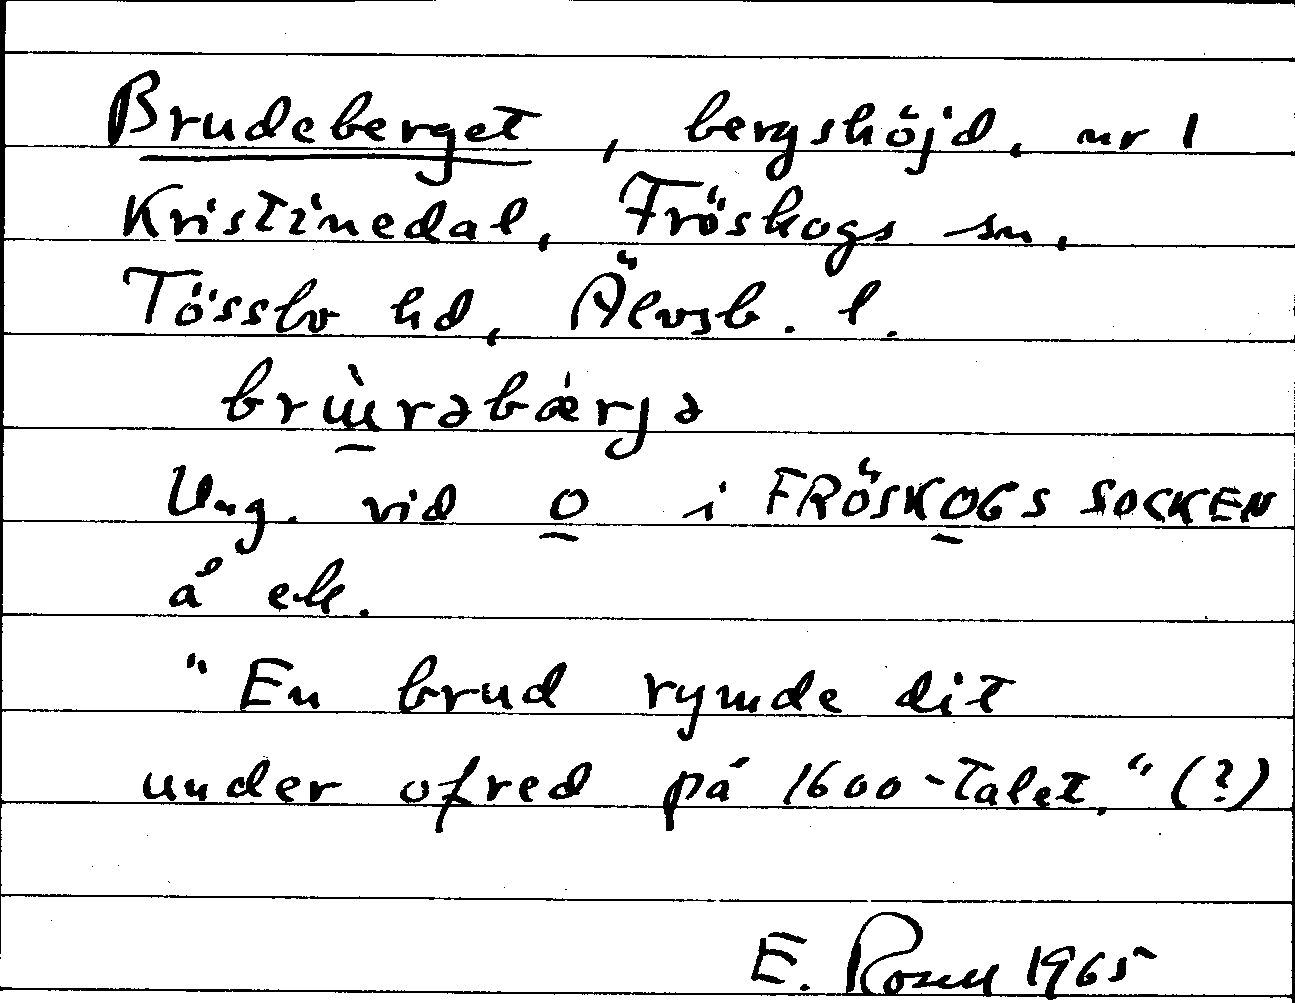 Brudeberget, bergshöjd, nr 1
Kristinedal, Fröskogs sn,
Tössbo hd, Älvsb. l.
brɯ̀rəbǽrjə
Ung. vid o i FRÖSKOGS SOCKEN
å ek.
"En brud rymde dit
under ofred på 1600-talet." (?)
E. Rosell 1965